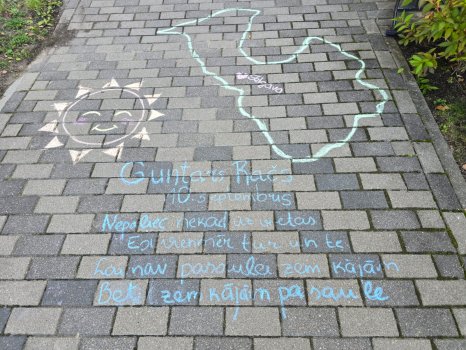 Guntars Račs
10. septembris
Nepaliec nekad uz vietas
Esi vienmēr tur un te
Lai nav pasaule zem kājām
Bet zem kājām pasaule